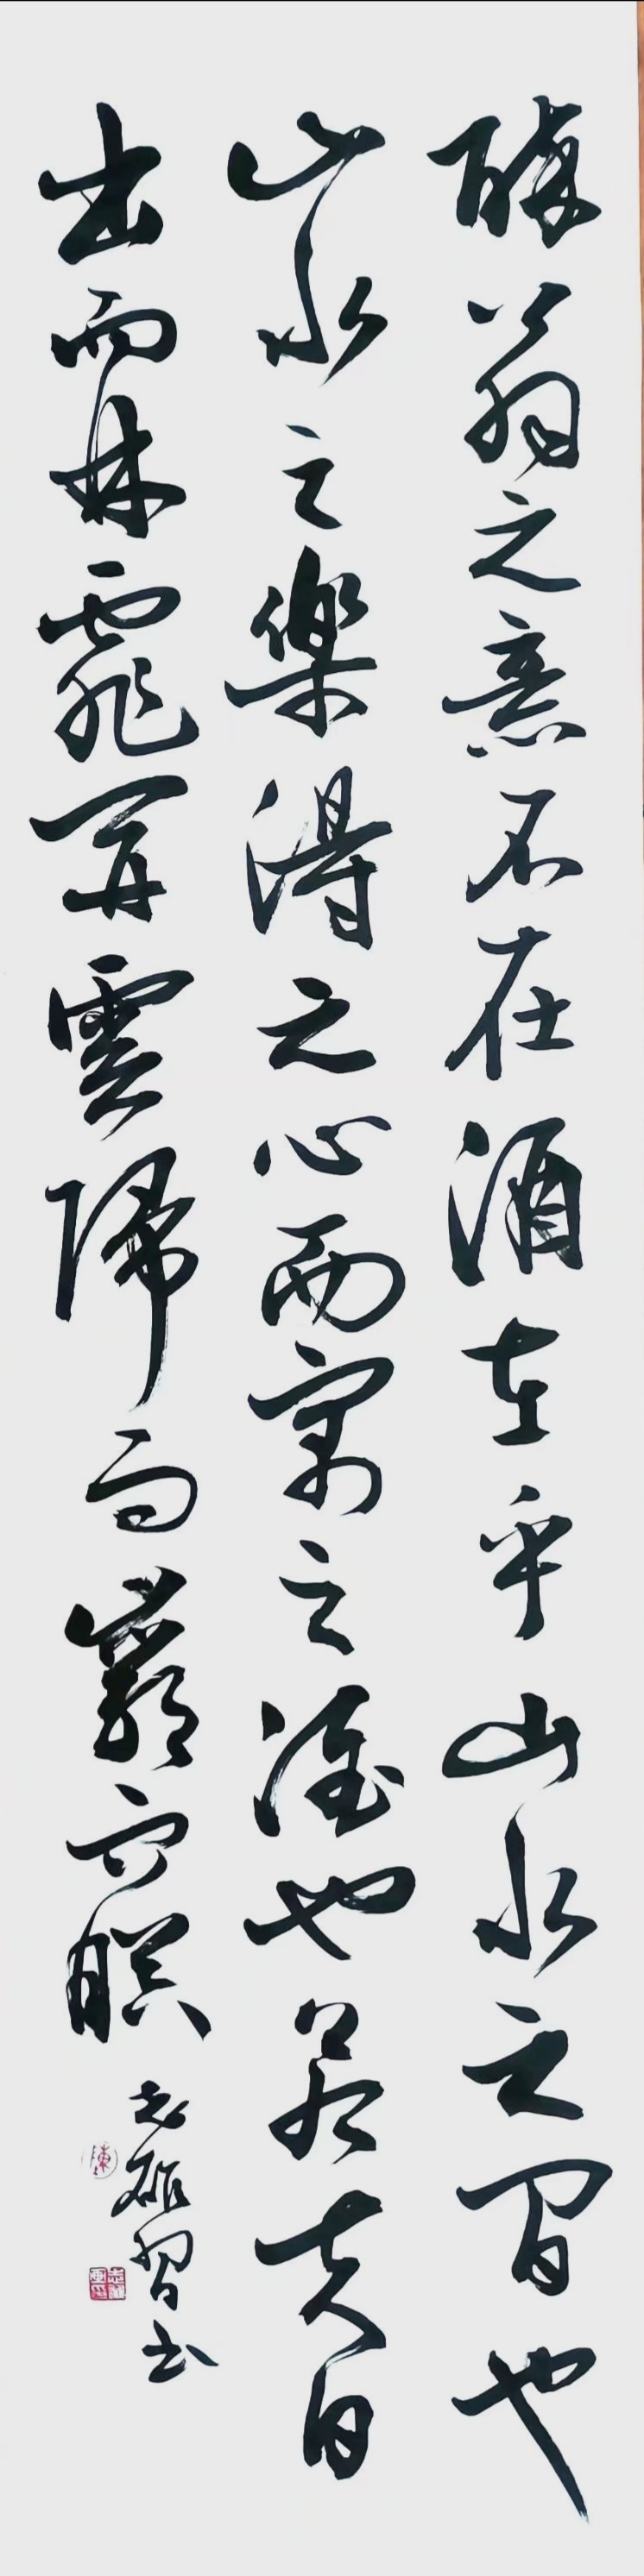 醉翁之意不在酒在乎山水之間也
山水之樂得之心而寓之酒也若夫日
出而林霏開雲歸而巖穴暝
志雄習书
陳